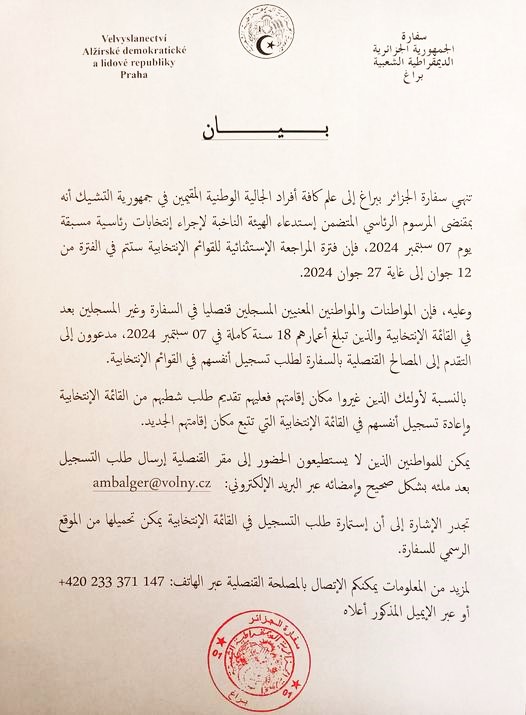 Velvyslanectví
Alžírské demokratické
a lidové republiky
Praha
سفارة
الجمهورية الجزائرية
الديمقراطية الشعبية
براغ
بـــيـــان
تنهي سفارة الجزائر ببراغ إلى علم كافة أفراد الجالية الوطنية المقيمين في جمهورية التشيك أنه
بمقتضى المرسوم الرئاسي المتضمن إستدعاء الهيئة الناخبة لإجراء إنتخابات رئاسية مسبقة
يوم 07 سبتمبر 2024، فإن فترة المراجعة الإستثنائية للقوائم الإنتخابية ستتم في الفترة من
12 جوان إلى غاية 27 جوان 2024.
وعليه، فإن المواطنات والمواطنين المعنيين المسجلين قنصليا في السفارة وغير المسجلين بعد
في القائمة الإنتخابية والذين تبلغ أعمارهم 18 سنة كاملة في 07 سبتمبر 2024، مدعوون إلى
التقدم إلى المصالح القنصلية بالسفارة لطلب تسجيل أنفسهم في القوائم الإنتخابية.
بالنسبة لأولئك الذين غيروا مكان إقامتهم فعليهم تقديم طلب شطبهم من القائمة الإنتخابية
وإعادة تسجيل أنفسهم في القائمة الإنتخابية التي تتبع مكان إقامتهم الجديد.
يمكن للمواطنين الذين لا يستطيعون الحضور إلى مقر القنصلية إرسال طلب التسجيل
بعد ملئه بشكل صحيح وإمضائه عبر البريد الإلكتروني: ambalger@volny.cz
تجدر الإشارة إلى أن إستمارة طلب التسجيل في القائمة الإنتخابية يمكن تحميلها من الموقع
الرسمي للسفارة.
لمزيد من المعلومات يمكنكم الإتصال بالمصلحة القنصلية عبر الهاتف: 147 371 233 420+
أو عبر الإيميل المذكور أعلاه
سفارة الجزائر
01
01
براغ